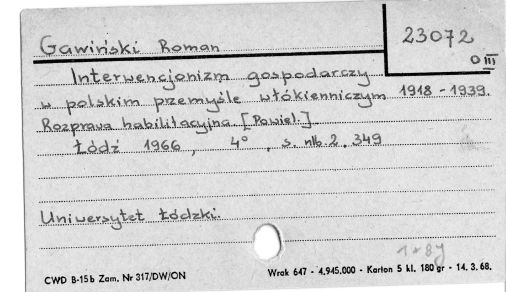 Gawiński Roman
23072
O III
Interwencjonizm gospodarczy
w polskim przemyśle włókienniczym 1918 - 1939.
Rozprawa habilitacyjna. [Powiel.]
Łódź 1966, 4°, s. nlb. 2, 349
Uniwersytet Łódzki.
CWD B-15b Zam. Nr 317/DW/ON
Wrak 647 - 4.945.000 - Karton 5 kl. 180 gr - 14. 3. 68.